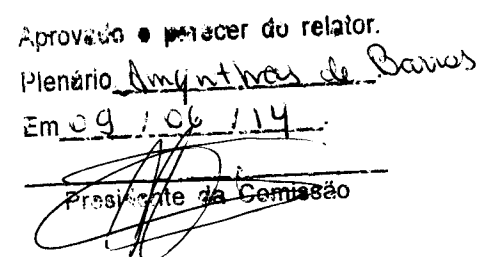 Aprovado o parecer do relator.
Plenário Amynthas de Barros
Em 09 / 06 / 14
Presidente da Comissão